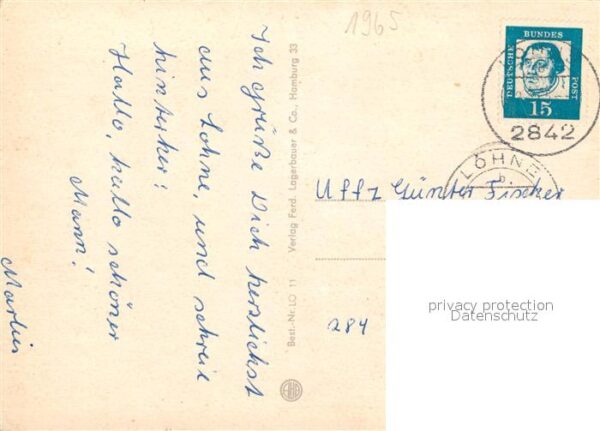 1965
Ich grüße Dich herzlichst
aus Lohne, und schreie
hinterher:
Hallo, hallo schöner
Mann!
Marlies
Best.-Nr. LO 11 Verlag Ferd. Lagerbauer & Co., Hamburg 33
DEUTSCHE
BUNDES
POST
15
2842
LOHNE
b
Uffz Günter Fischer
284
privacy protection
Datenschutz